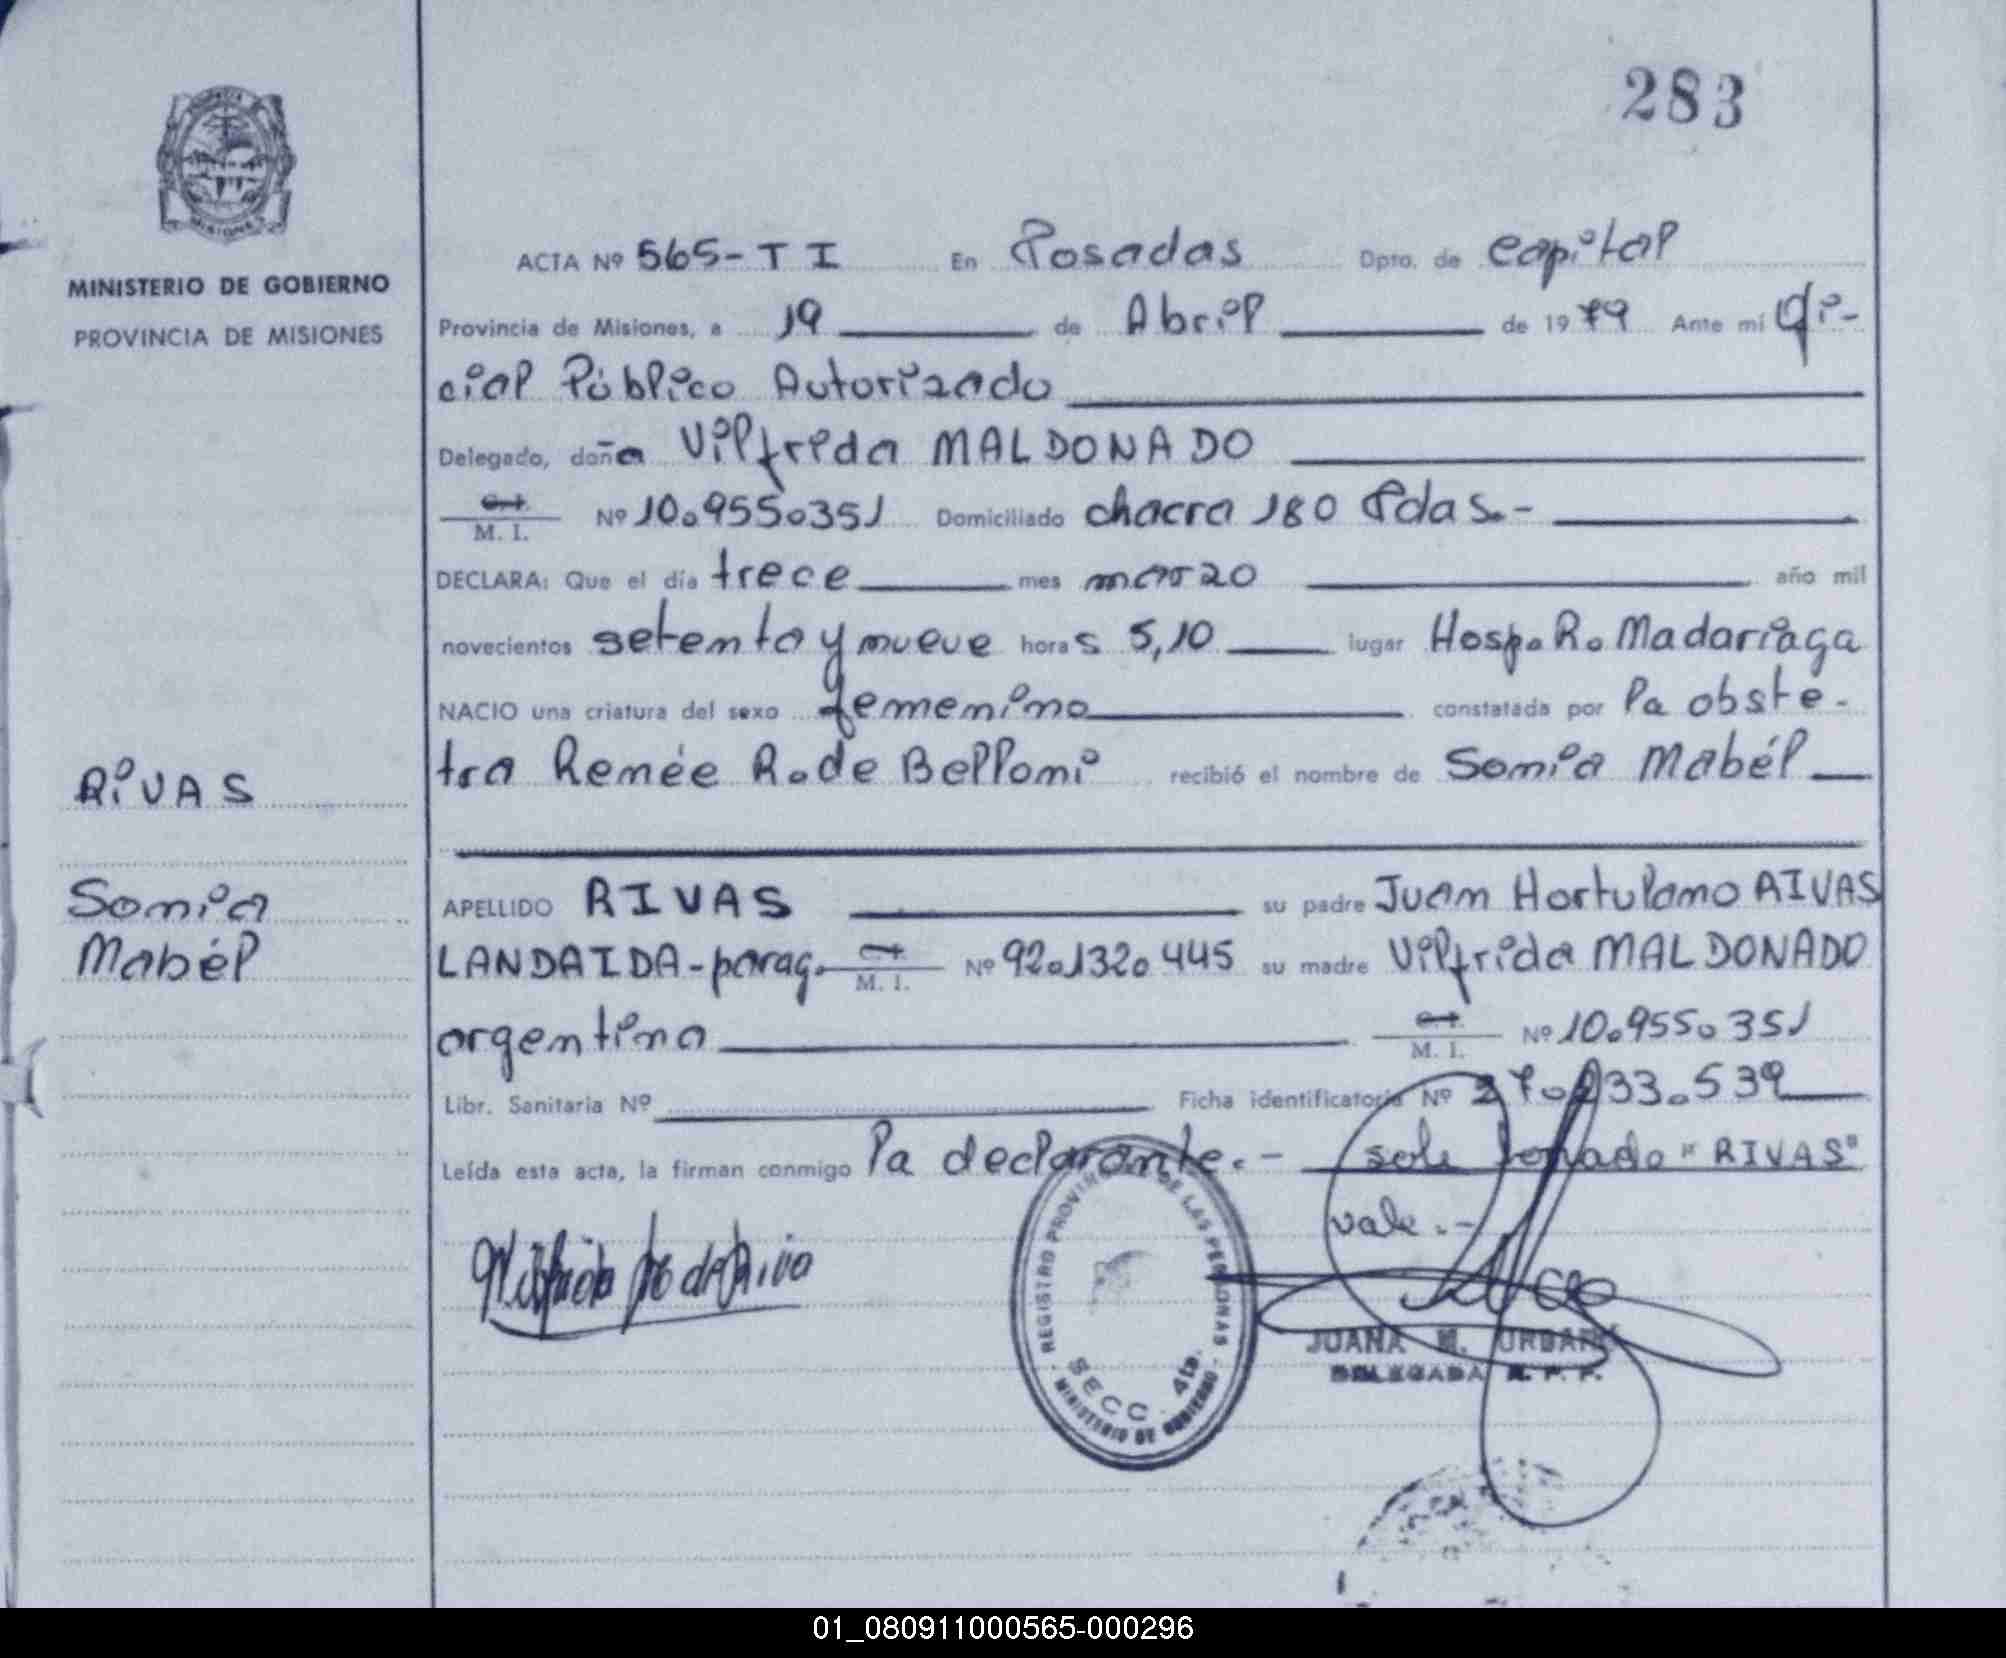 283
MINISTERIO DE GOBIERNO
PROVINCIA DE MISIONES
ACTA Nº 565-T I En Posadas Dpto. de Capital
Provincia de Misiones, a 19 de Abril de 1979 Ante mí Ofi-
cial Público Autorizado
Delegado, doña Vilfrida MALDONADO
C. I.
M. I. Nº 10.955.351 Domiciliado chacra 180 Pdas.-
DECLARA: Que el día trece mes marzo año mil
novecientos setenta y nueve horas 5,10 lugar Hosp. R. Madariaga
NACIO una criatura del sexo femenino constatada por la obste-
tra Renée R. de Belloni recibió el nombre de Sonia Mabél
RIVAS
Sonia
Mabél
APELLIDO RIVAS su padre Juan Hortulano RIVAS
LANDAIDA-parag. C. I. M. I. Nº 92.132.445 su madre Vilfrida MALDONADO
argentina C. I. M. I. Nº 10.955.351
Libr. Sanitaria Nº Ficha identificatoria Nº 27.233.539
Leída esta acta, la firman conmigo la declarante.- sobre borrado "RIVAS"
vale.-
REGISTRO PROVINCIAL DE LAS PERSONAS
SECC. 4ta.
MINISTERIO DE GOBIERNO
JUANA M. URBANI
DELEGADA R. P. P.
01_080911000565-000296